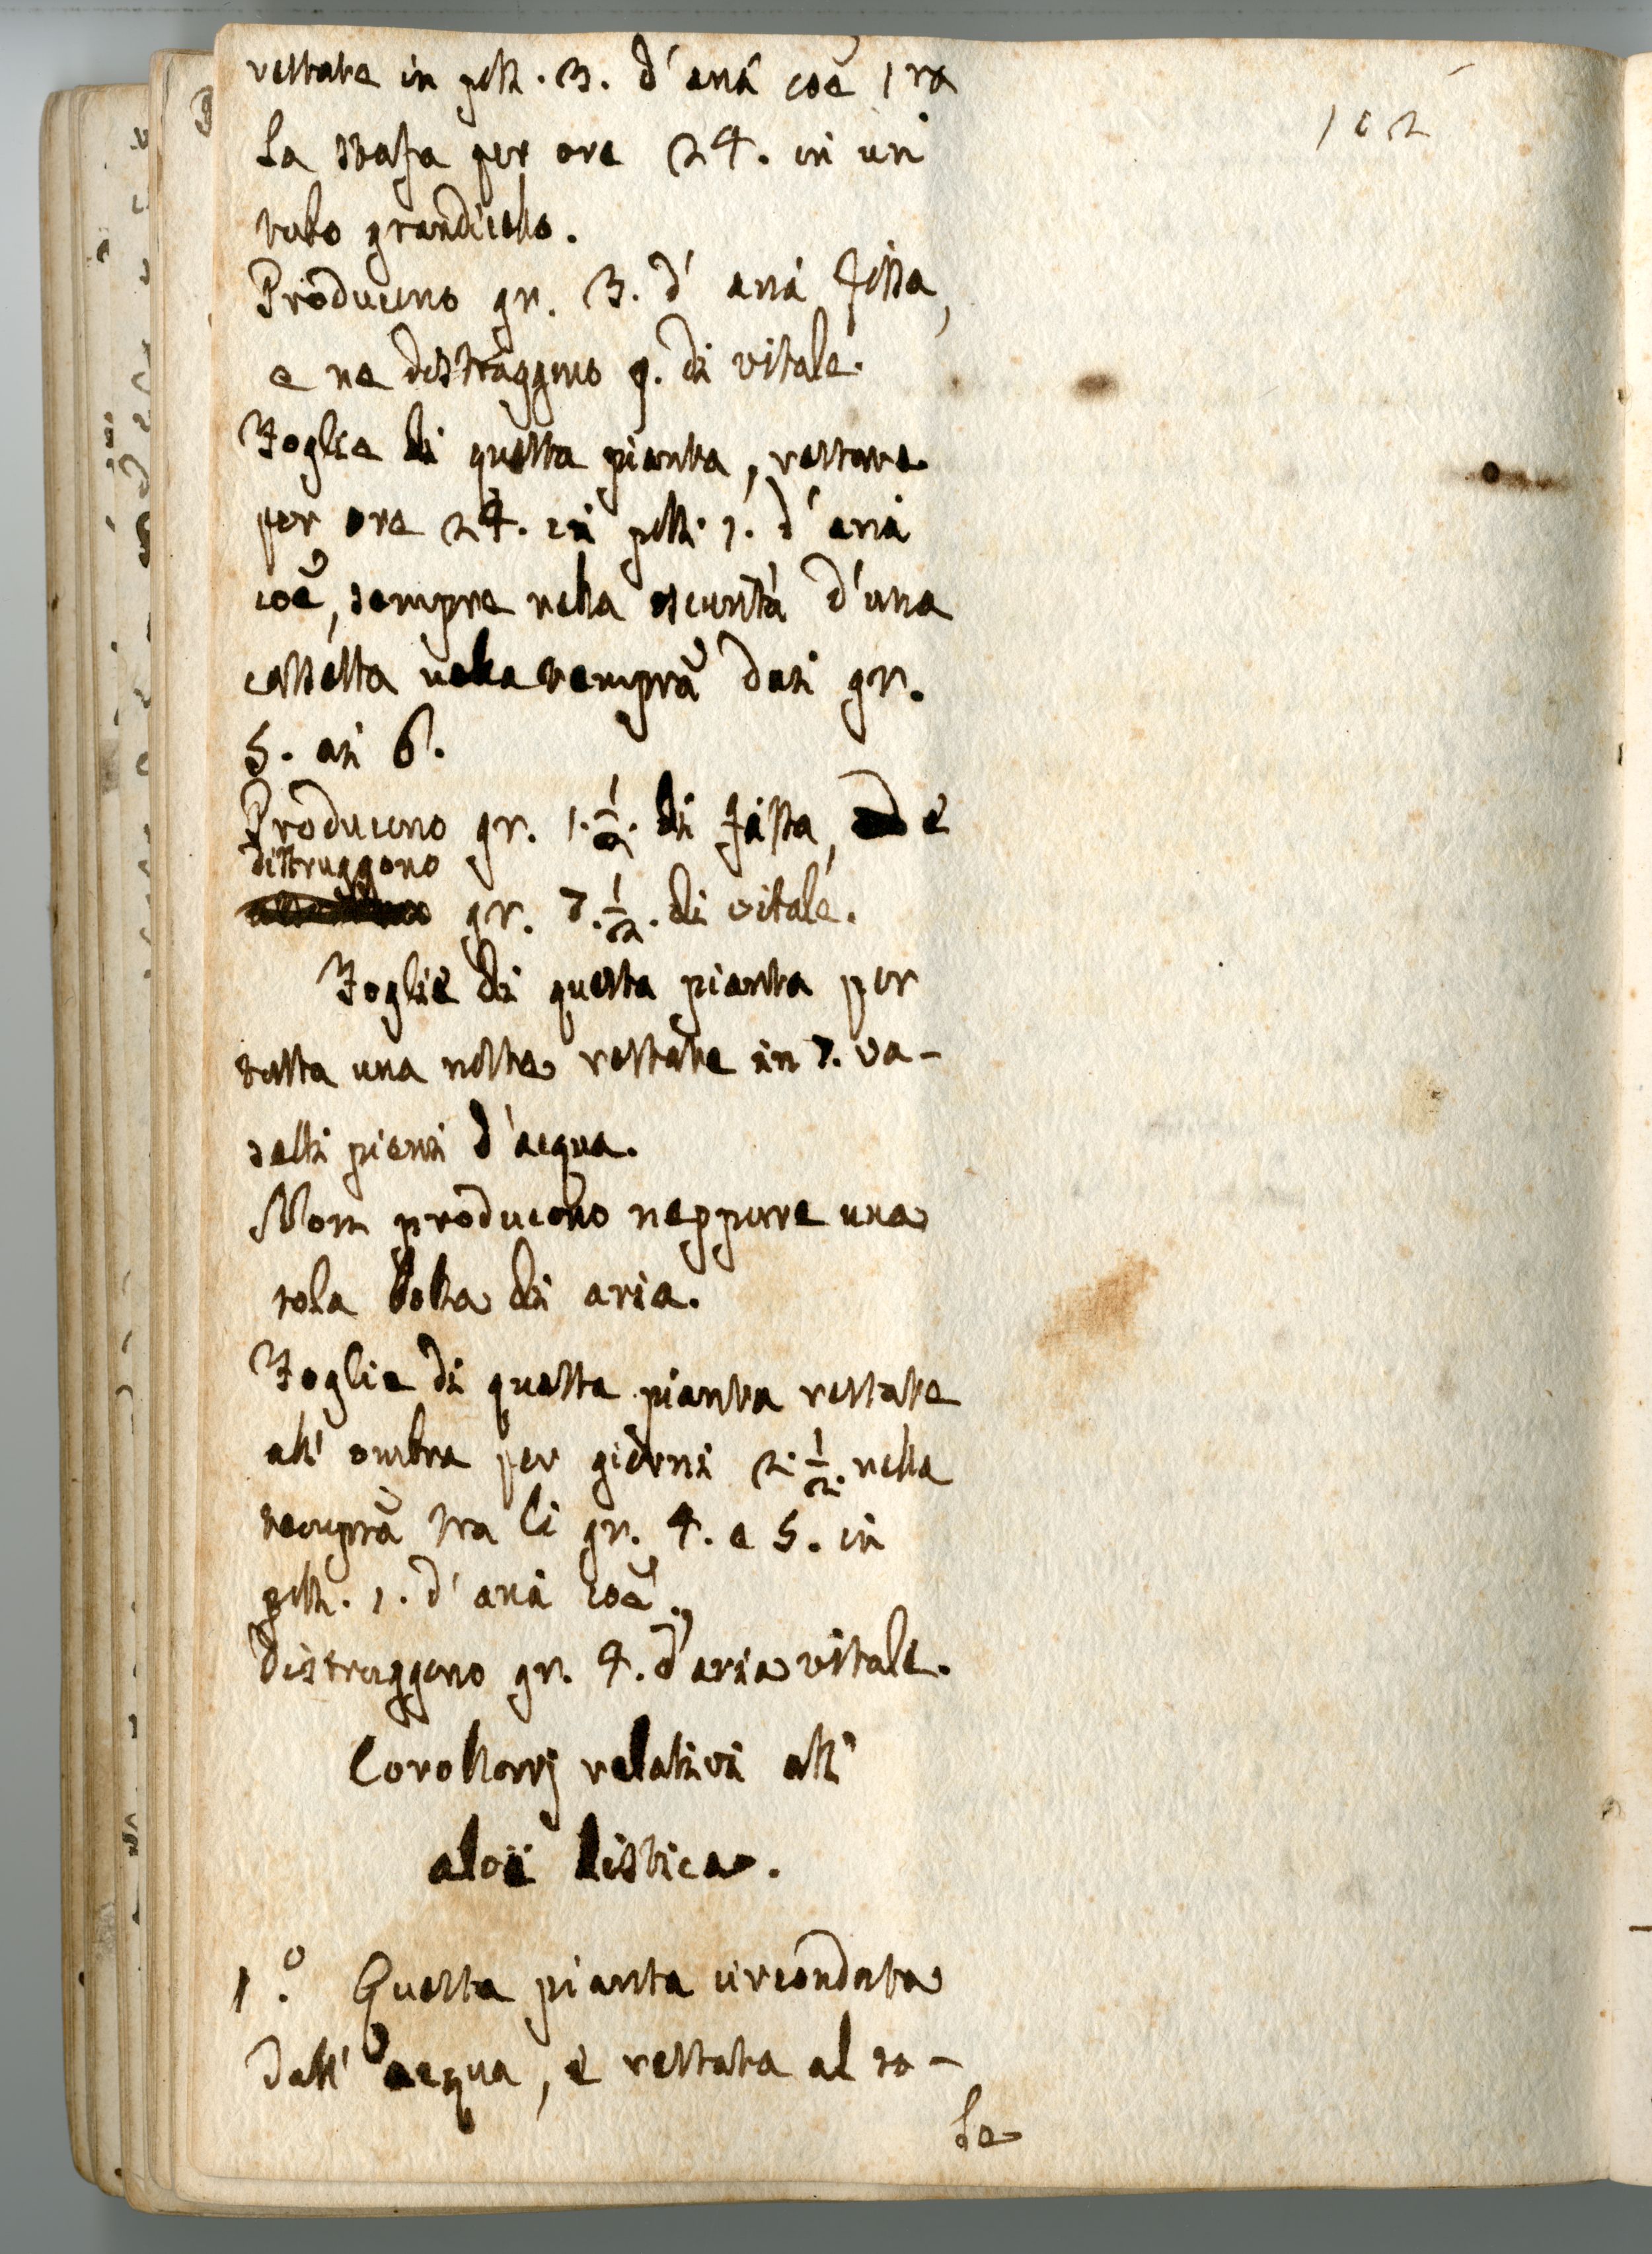 restate in poll. 3. d'aria coē, 1ra
la stufa per ore 24. in un
tubo grandicello.
102
Producono gr. 3. d'aria fissa,
e ne distruggono 9. di vitale.
Foglie di questa pianta, restate
per ore 24. in poll. 1. d'aria
coē, sempre nella oscurità d'una
cassetta nella temprā dai gr.
5. ai 6.
Producono gr. 1. 1/2. di fissa, e
distruggono
gr. 7. 1/2. di vitale.
Foglie di questa pianta per
tutta una notte restate in 7. va-
setti pieni d'acqua.
Non producono neppure una
sola bolla di aria.
Foglie di questa pianta restate
all' ombra per giorni 2. 1/2. nella
temprā tra li gr. 4. e 5. in
poll. 1. d'aria coē.,
Distruggono gr. 4. d'aria vitale.
Corollarj relativi all'
aloè listica.
1.° Questa pianta circondata
dall' acqua, e restata al so-
le